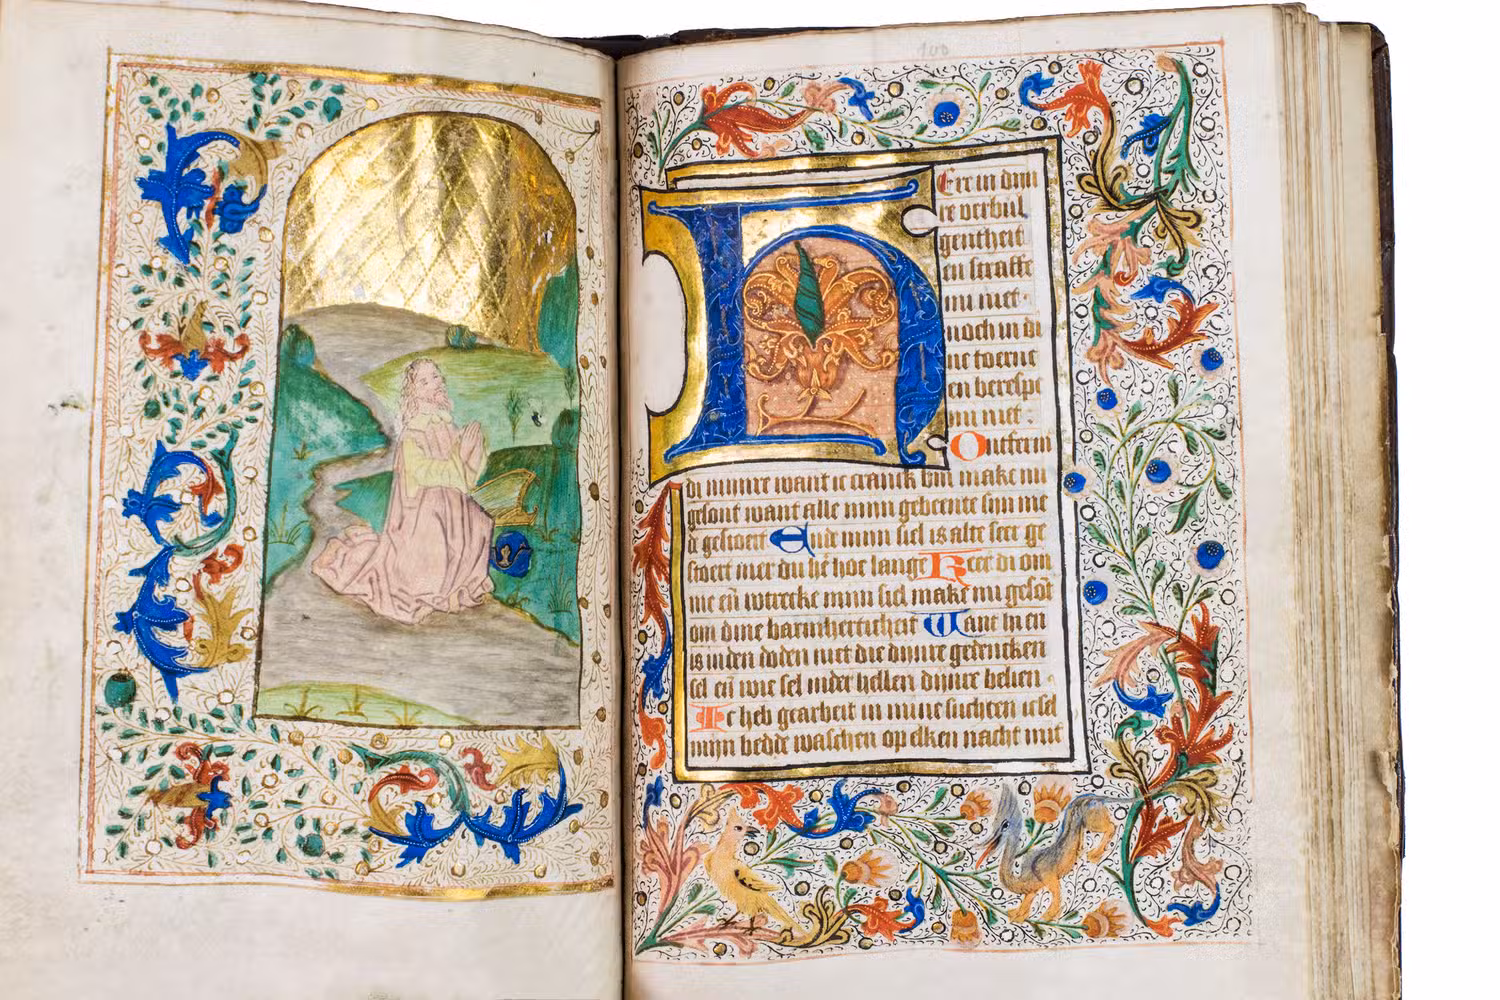 100
HEre in dinre
re verbul
gentheit
en straffe
mi niet·
noch in di
ne toerne
en berespe
mi niet:
Ontferm
di minre want ic cranck bin make mi
gesont want alle mijn gebeente sijn me
de gestoert Ende mijn siel is alte seer ge
stoert mer du here hoe lange Heer di om
me eñ wtrecke mijn siel make mi gesōt
om dine barmherticheit Want hi en
is inden doden niet die dijnre gedencken
sel eñ wie sel inder hellen dijnre belien·
Ic heb gearbeit in mine suchten ic sel
mijn bedde waschen op elken nacht mit